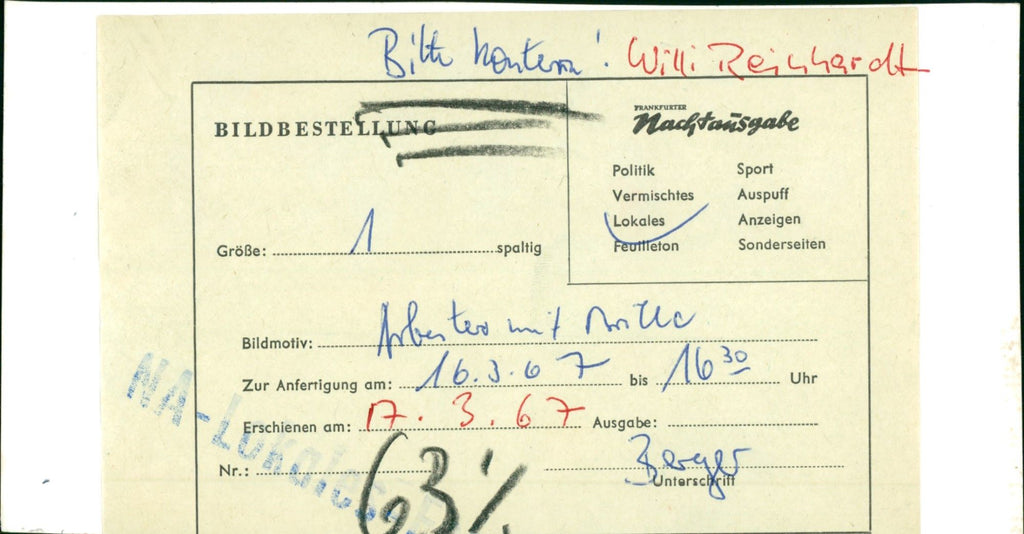 Bitte kontern! Willi Reinhardt
BILDBESTELLUNG
FRANKFURTER
Nachtausgabe
Politik Sport
Vermischtes Auspuff
Lokales Anzeigen
Feuilleton Sonderseiten
Größe: 1 spaltig
Bildmotiv: Arbeiter mit Brille
Zur Anfertigung am: 16.3.67 bis 16 30 Uhr
Erschienen am: 17.3.67 Ausgabe:
NA-Lokales
Nr.: 63% Berger
Unterschrift